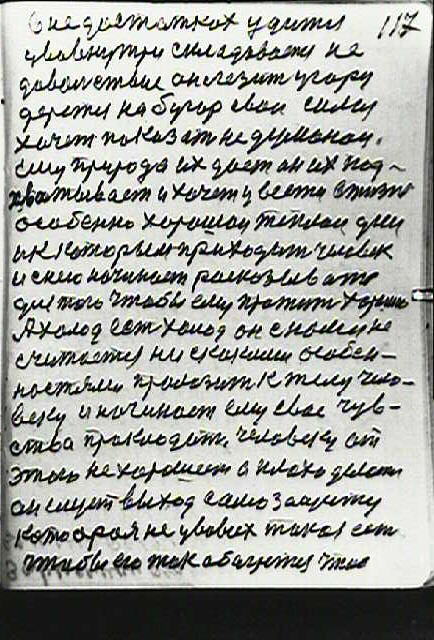 в недостатках удется 117
увовнутри складавается не
довольствие он лезит угору
держится на бугор свои силы
хочет показать недуманои.
Ему природа их дает он их под-
хватывает и хочет увести в жизнь
особенно хорошои теплои дни
и к которым приходит человек
и с нею начинает расказывать
для того чтобы ему пожить хорошо
А холод ест холод он с ными не
считается ни с какими особен-
ностями пролазит к телу чело-
веку и начинает ему свое чув-
ства прокладать человеку от
этого не хорошеет а плохо делает
он ищет выход самозащиту
которая не увовсех такая ест
чтобы его так абагретися что